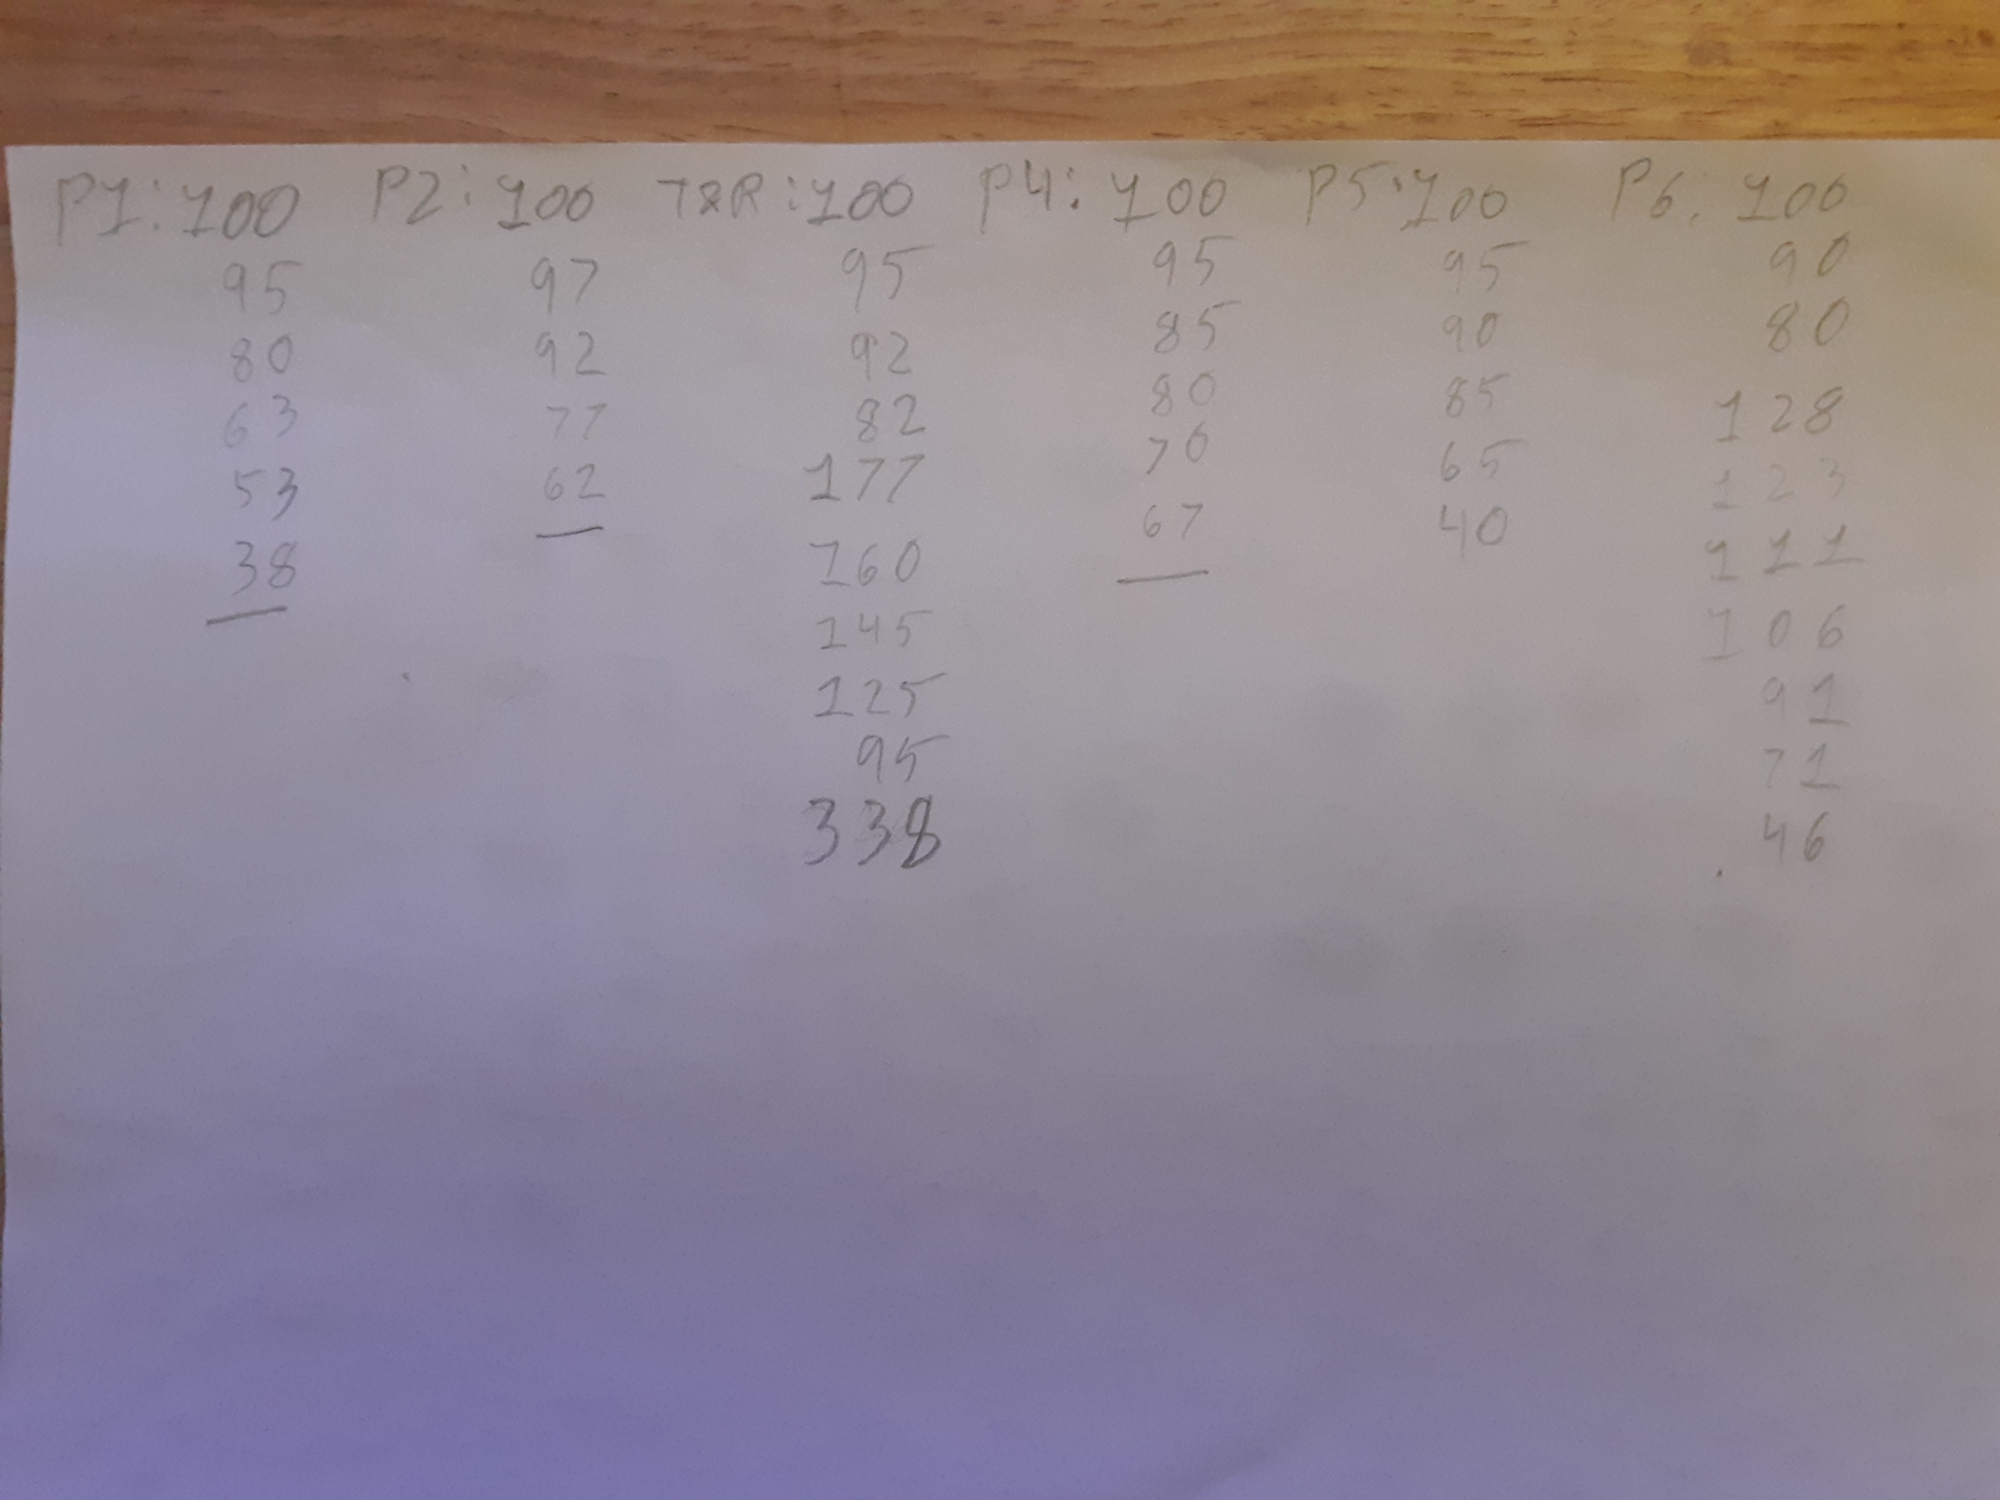 P1:100 P2:100 T&R:100 P4:100 P5:100 P6:100
95 97 95 95 95 90
80 92 92 85 90 80
63 77 82 80 85 128
53 62 177 70 65 123
38 160 67 40 111
145 106
125 91
95 71
338 46